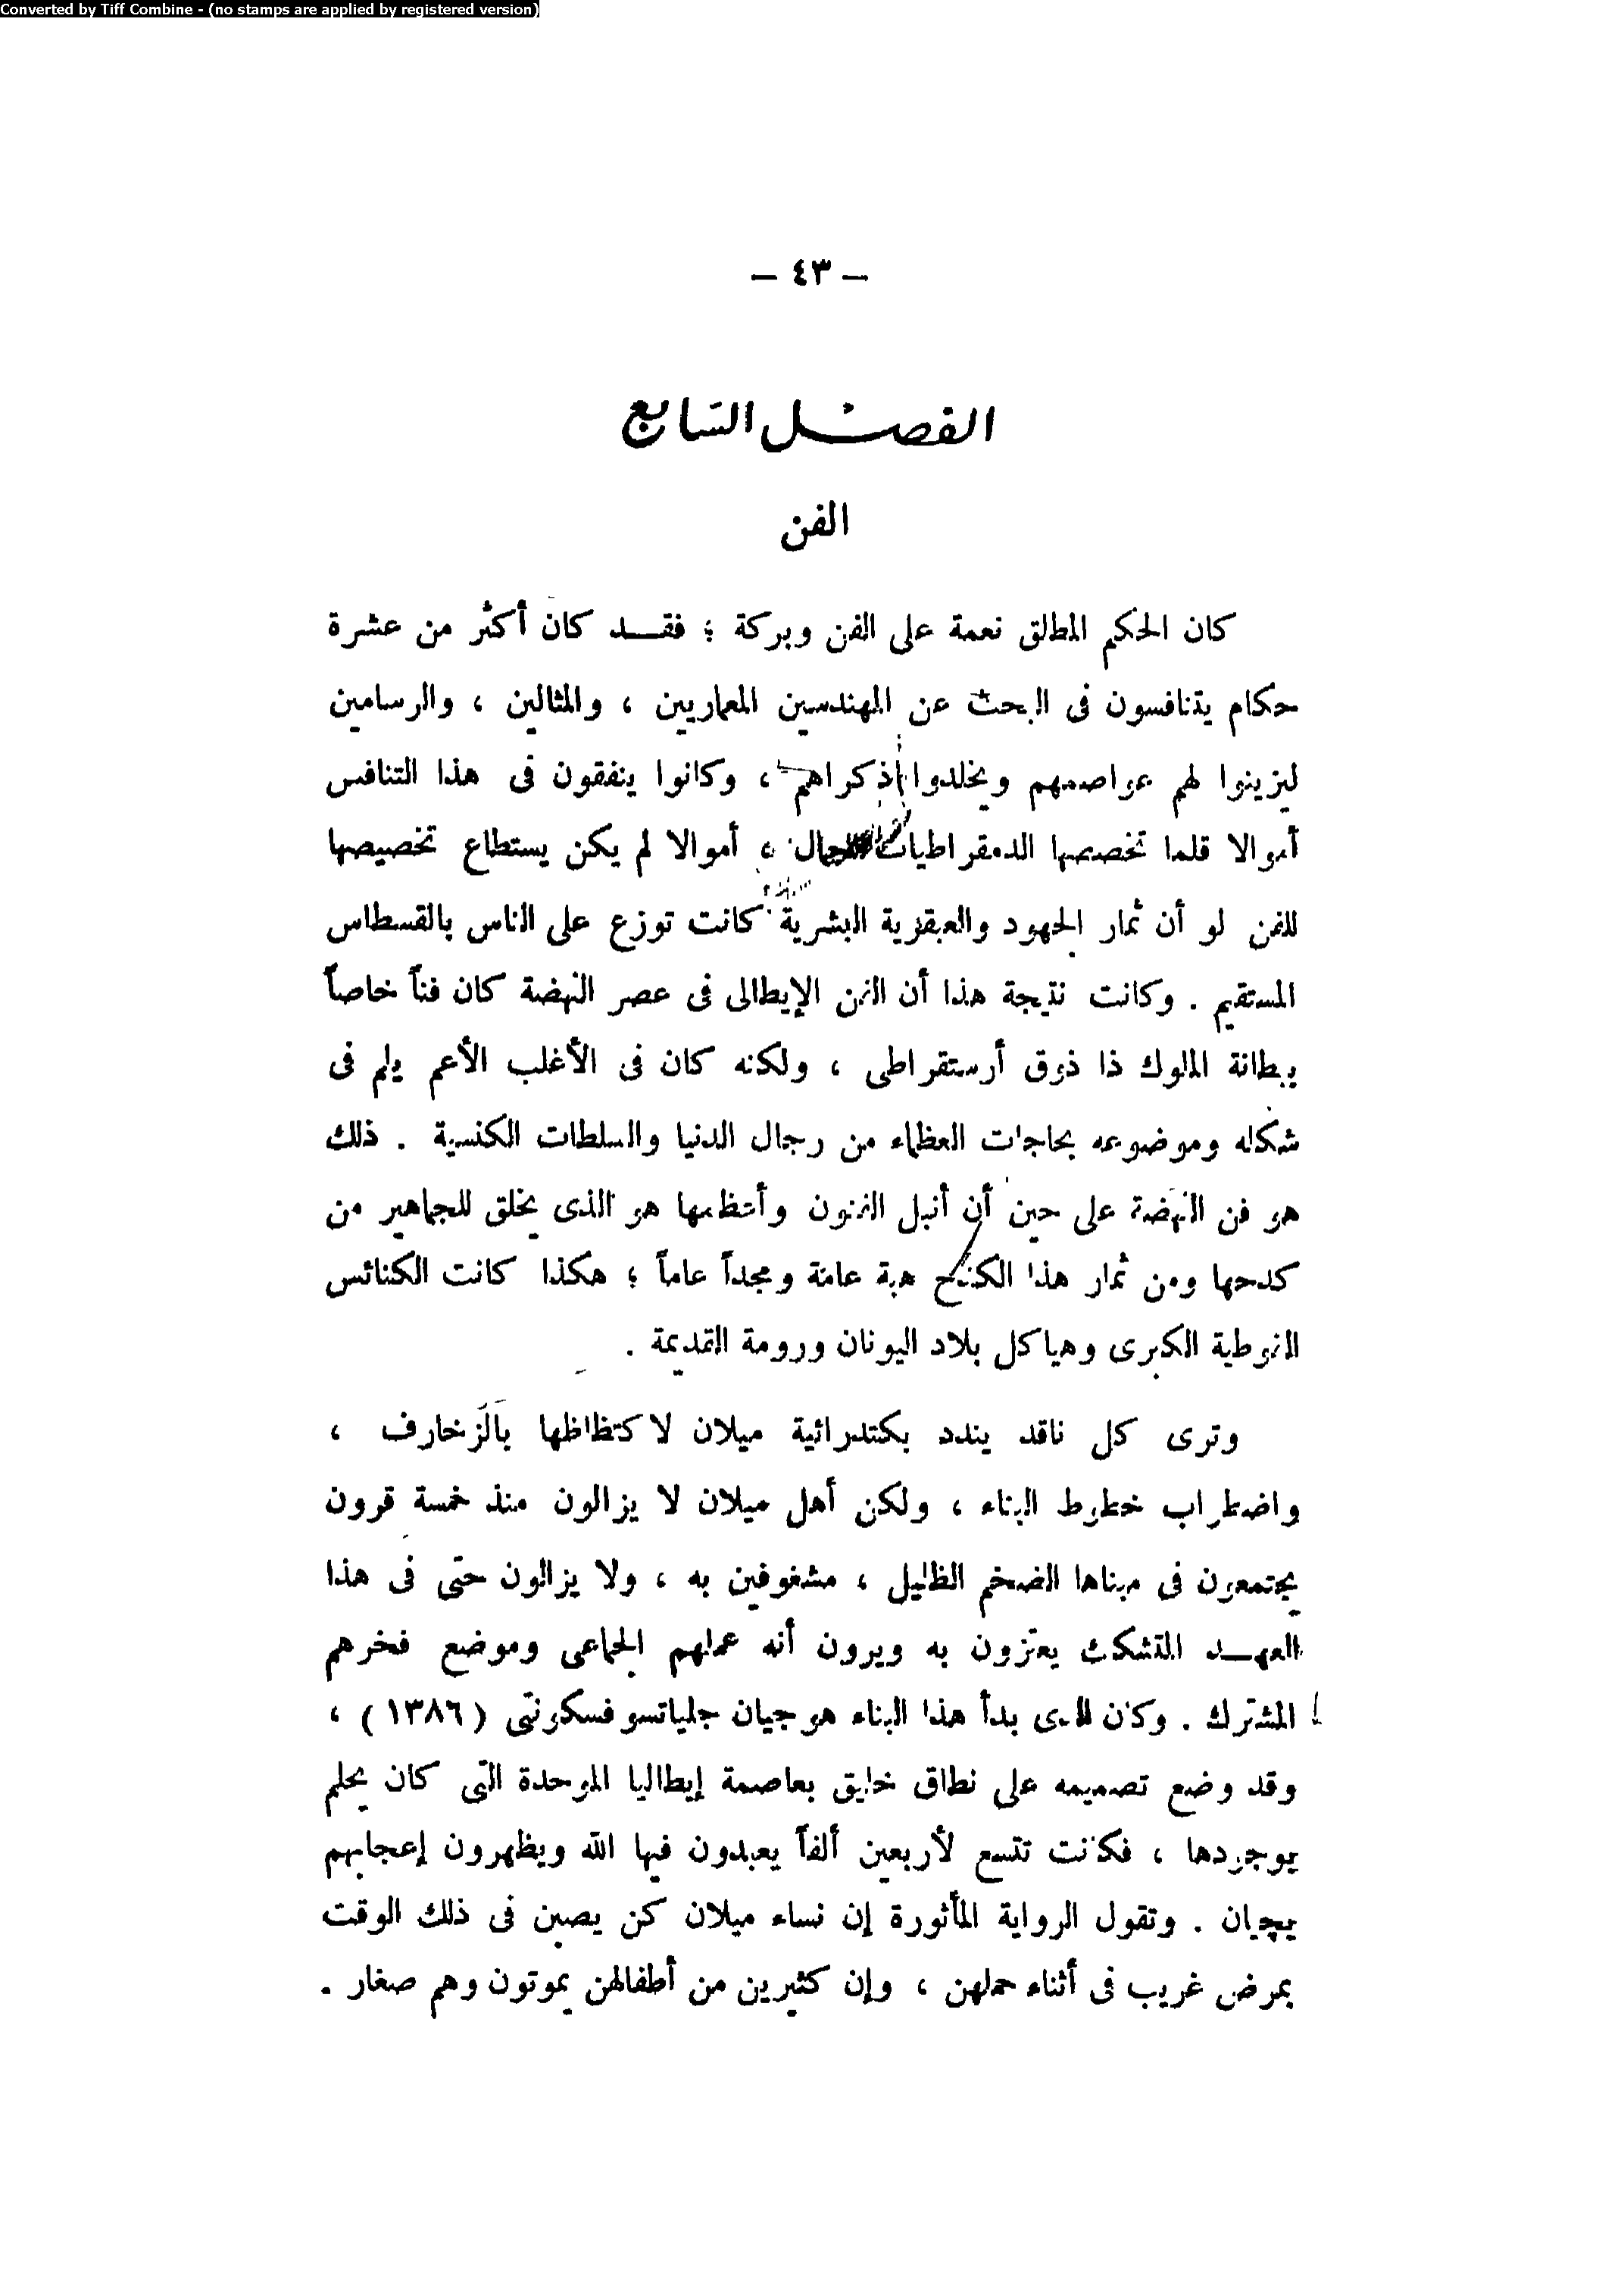 Converted by Tiff Combine - (no stamps are applied by registered version)
— ٤٣ —
الفصل السابع
الفن
كان الحكم المطلق نعمة على الفن وبركة ؛ فقد كان أكثر من عشرة
حكام يتنافسون فى البحث عن المهندسين المعماريين ، والمثالين ، والرسامين
ليزينوا لهم عواصمهم ويخلدوا ذكراهم ، وكانوا ينفقون فى هذا التنافس
أموالا قلما تخصصها الدمقراطيات للجمال ، أموالا لم يكن يستطاع تخصيصها
للفن لو أن ثمار الجهود والعبقرية البشرية كانت توزع على الناس بالقسطاس
المستقيم . وكانت نتيجة هذا أن الفن الإيطالى فى عصر النهضة كان فناً خاصاً
ببطانة الملوك ذا ذوق أرستقراطى ، ولكنه كان فى الأغلب الأعم يلم فى
شكله وموضوعه بحاجات العظماء من رجال الدنيا والسلطات الكنسية . ذلك
هو فن النهضة على حين أن أنبل الفنون وأعظمها هو الذى يخلق للجماهير من
كدحها ومن ثمار هذا الكدح هبة عامة ومجداً عاماً ؛ هكذا كانت الكنائس
القوطية الكبرى وهياكل بلاد اليونان ورومة القديمة .
وترى كل ناقد يندد بكتدرائية ميلان لاكتظاظها بالزخارف ،
واضطراب خطوط البناء ، ولكن أهل ميلان لا يزالون منذ خمسة قرون
يجتمعون فى مبناها الضخم الظليل ، مشغوفين به ، ولا يزالون حتى فى هذا
العهد المتشكك يعتزون به ويرون أنه عملهم الجماعى وموضع فخرهم
المشترك . وكان الذى بدأ هذا البناء هو جيان جلياتسو فسكونتى ( ١٣٨٦ ) ،
وقد وضع تصميمه على نطاق خليق بعاصمة إيطاليا الموحدة التى كان يحلم
بوجودها ، فكانت تتسع لأربعين ألفاً يعبدون فيها الله ويظهرون إعجابهم
بچيان . وتقول الرواية المأثورة إن نساء ميلان كن يصبن فى ذلك الوقت
بمرض غريب فى أثناء حملهن ، وإن كثيرين من أطفالهن يموتون وهم صغار .